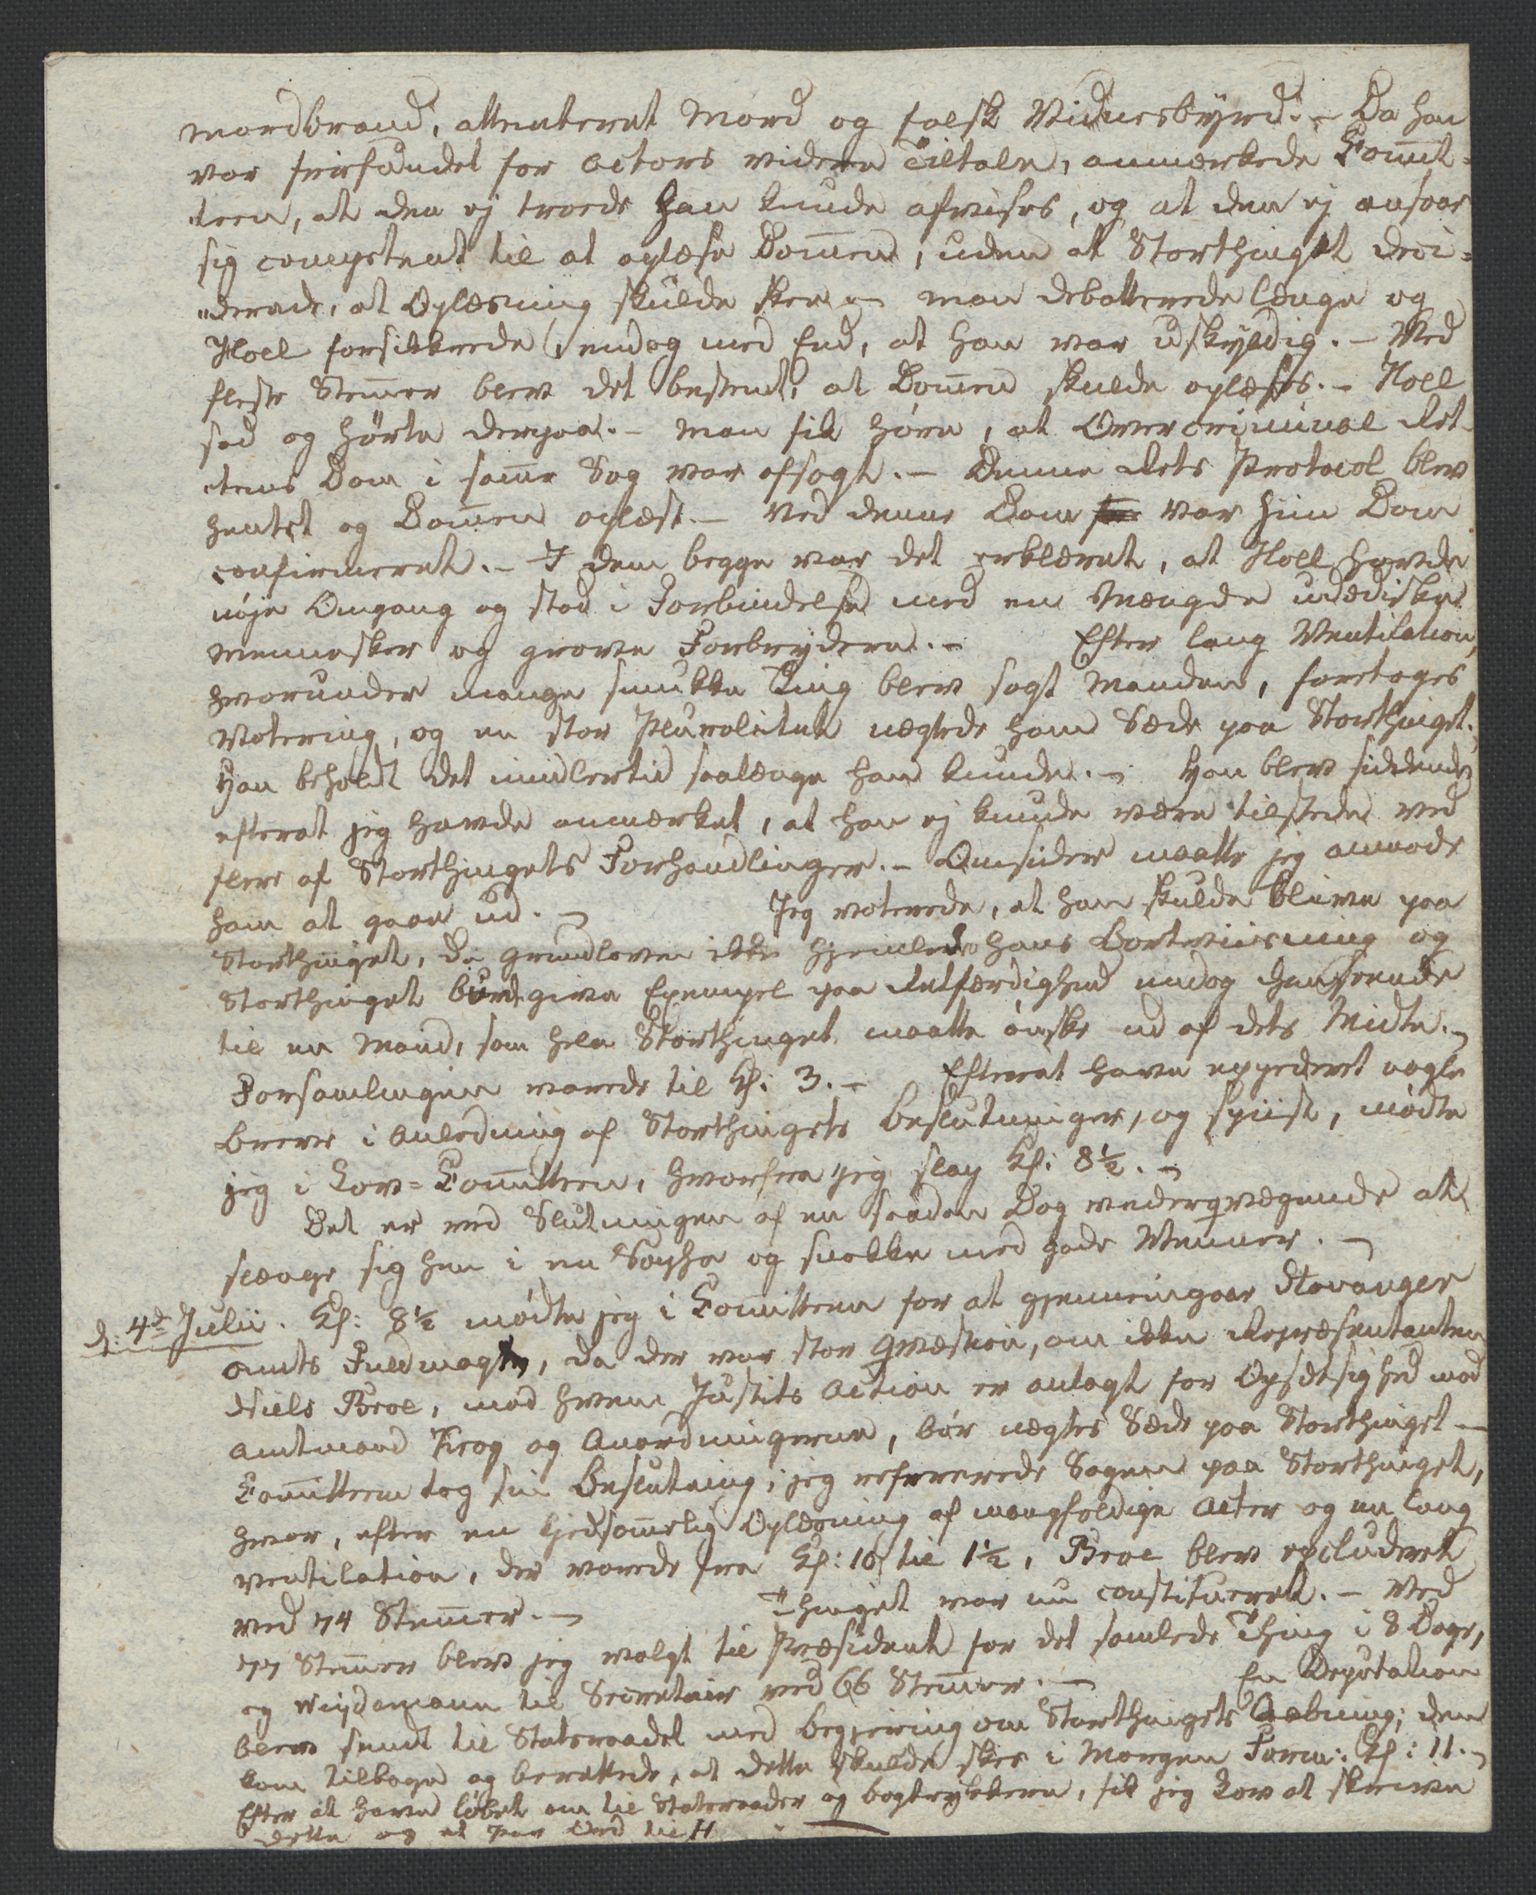 mordbrand, attenteret Mord og falsk Vidnesbyrd. – Da han
var frifundet for Actors videre Tiltale, anmærkede Comit-
teen, at den ej troede han kunde afvises, og at den ej ansaae
sig competent til at oplæse Dommen, uden at Storthinget deci-
derede, at Oplæsning skulde skee. – man debatterede længe og
Holl forsikkrede, endog med Eed, at han var uskyldig. – Ved
fleste Stemmer blev det bestemt, at Dommen skulde oplæses. – Holl
sad og hørte derpaa. – man fik høre, at Overcriminal Ret-
tens Dom i samme Sag var afsagt. – Denne Rets Protocol blev
hentet og Dommen oplæst. – Ved denne Dom var hiin Dom
confirmeret. – I dem begge var det erklæret, at Holl havde
nøje Omgang og stod i Forbindelse med en Mængde udædiske
Mennesker og grove Forbrydere. – Efter lang Ventilation,
hvorunder mange smukke Ting blev sagt Manden, foretoges
Votering, og en stor Pluralitet nægtede ham Sæde paa Storthinget.
Han beholdt det imidlertid saalænge han kunde. – Han blev siddende
efterat jeg havde anmærket, at han ej kunde være tilstede ved
flere af Storthingets Forhandlinger. – Omsider maatte jeg anmode
ham at gaae ud. – Jeg voterede, at han skulde blive paa
Storthinget, da Grundloven ikke hjemlede hans Bortviisning og
Storthinget burde give Exempel paa Retfærdighed endog henseende
til en Mand, som hele Storthinget maatte ønske ud af dets Midte. –
Forsamlingen varede til Kl: 3. – Efterat have expederet nogle
Breve i Anledning af Storthingets Beslutninger, og spiist, mødte
jeg i Lov-Comitteen, hvorfra jeg slap Kl: 8½. –
Det er ved Slutningen af en saadan Dag vederqvægende at
slænge sig hen i en Sopha og snakke med gode Venner. –
d: 4de Julii. Kl: 8½ mødte jeg i Comitteen for at gjennemgaae Stavanger
Amts Fuldmagt, da der var stor Qvæstion, om ikke Repræsentanten
Niels Broe, mod hvem Justits Action er anlagt for Opsætsighed mod
Amtmand Krog og Anordningerne, bør nægtes Sæde paa Storthinget –
Comitteen tog sin Beslutning; jeg refererede Sagen paa Storthinget,
hvor, efter en kjedsommelig Oplæsning af mangfoldige Acter og en lang
ventilation, der varede fra Kl: 10 til 1½, Broe blev excluderet
ved 74 Stemmer. – Thinget var nu constitueret. – Ved
77 Stemmer blev jeg valgt til Præsident for det samlede Thing i 8 Dage,
og Weidemann til Secretair ved 66 Stemmer. – En Deputation
blev sendt til Statsraadet med Begjering om Storthingets Aabning; den
kom tilbage og berettede, at dette skulde skee i Morgen Form: Kl: 11. –
Efter at have løbet om til Statsraader og bogtrykkere, fik jeg Lov at skrive
dette og et Par Ord til H